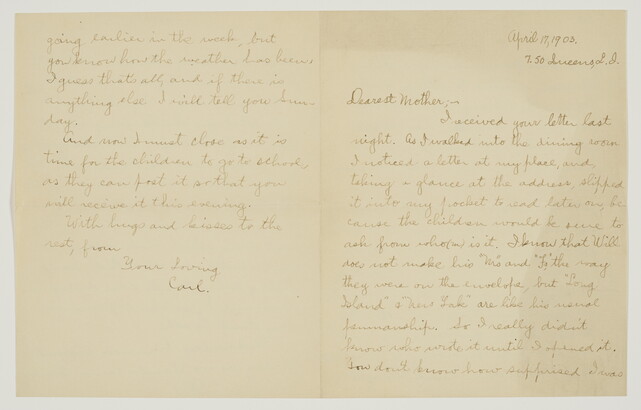 April 17, 1903.
7.50 Queens, L.I.
Dearest Mother;—
I received your letter last
night. As I walked into the dining room
I noticed a letter at my place, and,
taking a glance at the address, slipped
it into my pocket to read later on, be
cause the children would be sure to
ask from whom is it. I know that Will
does not make his "Mrs" and the way
they were on the envelope, but "Long
Island" & "New York" are like his usual
penmanship. So I really didn't
know who wrote it until I opened it.
You don't know how supprised I was
going earlier in the week, but
you know how the weather has been.
I guess that's all, and if there is
anything else I will tell you Sun-
day.
And now I must close as it is
time for the children to go to school,
as they can post it so that you
will receive it this evening.
With hugs and kisses to the
rest, from
Your Loving
Carl.